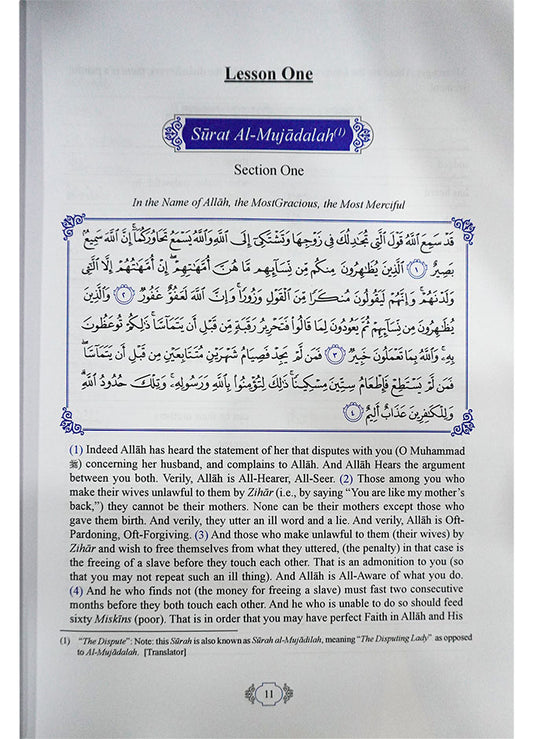 Lesson One
Sūrat Al-Mujādalah(1)
Section One
In the Name of Allāh, the MostGracious, the Most Merciful
قَدْ سَمِعَ اللَّهُ قَوْلَ الَّتِي تُجَادِلُكَ فِي زَوْجِهَا وَتَشْتَكِي إِلَى اللَّهِ وَاللَّهُ يَسْمَعُ تَحَاوُرَكُمَا إِنَّ اللَّهَ سَمِيعٌ
بَصِيرٌ ﴿١﴾ الَّذِينَ يُظَاهِرُونَ مِنكُم مِّن نِّسَائِهِم مَّا هُنَّ أُمَّهَاتِهِمْ إِنْ أُمَّهَاتُهُمْ إِلَّا اللَّائِي
وَلَدْنَهُمْ وَإِنَّهُمْ لَيَقُولُونَ مُنكَرًا مِّنَ الْقَوْلِ وَزُورًا وَإِنَّ اللَّهَ لَعَفُوٌّ غَفُورٌ ﴿٢﴾ وَالَّذِينَ
يُظَاهِرُونَ مِن نِّسَائِهِمْ ثُمَّ يَعُودُونَ لِمَا قَالُوا فَتَحْرِيرُ رَقَبَةٍ مِّن قَبْلِ أَن يَتَمَاسَّا ذَلِكُمْ تُوعَظُونَ
بِهِ وَاللَّهُ بِمَا تَعْمَلُونَ خَبِيرٌ ﴿٣﴾ فَمَن لَّمْ يَجِدْ فَصِيَامُ شَهْرَيْنِ مُتَتَابِعَيْنِ مِن قَبْلِ أَن يَتَمَاسَّا
فَمَن لَّمْ يَسْتَطِعْ فَإِطْعَامُ سِتِّينَ مِسْكِينًا ذَلِكَ لِتُؤْمِنُوا بِاللَّهِ وَرَسُولِهِ وَتِلْكَ حُدُودُ اللَّهِ
وَلِلْكَافِرِينَ عَذَابٌ أَلِيمٌ ﴿٤﴾
(1) Indeed Allāh has heard the statement of her that disputes with you (O Muhammad
ﷺ) concerning her husband, and complains to Allāh. And Allāh Hears the argument
between you both. Verily, Allāh is All-Hearer, All-Seer. (2) Those among you who
make their wives unlawful to them by Zihār (i.e., by saying “You are like my mother’s
back,”) they cannot be their mothers. None can be their mothers except those who
gave them birth. And verily, they utter an ill word and a lie. And verily, Allāh is Oft-
Pardoning, Oft-Forgiving. (3) And those who make unlawful to them (their wives) by
Zihār and wish to free themselves from what they uttered, (the penalty) in that case is
the freeing of a slave before they touch each other. That is an admonition to you (so
that you may not repeat such an ill thing). And Allāh is All-Aware of what you do.
(4) And he who finds not (the money for freeing a slave) must fast two consecutive
months before they both touch each other. And he who is unable to do so should feed
sixty Miskīns (poor). That is in order that you may have perfect Faith in Allāh and His
(1) “The Dispute”: Note: this Sūrah is also known as Sūrah al-Mujādilah, meaning “The Disputing Lady” as opposed
to Al-Mujādalah. [Translator]
11